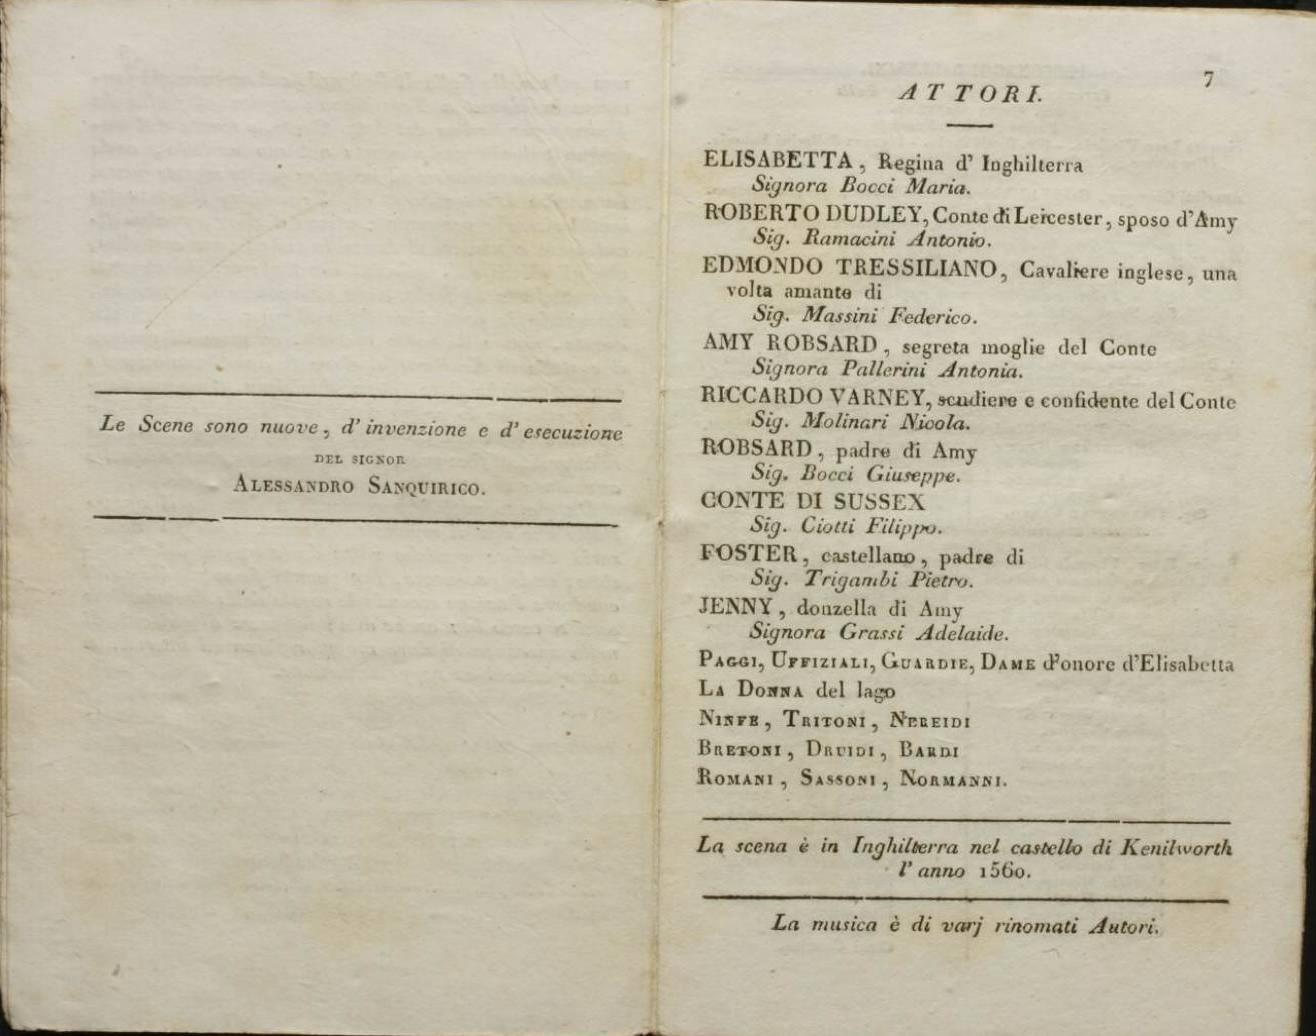 Le Scene sono nuove, d' invenzione e d' esecuzione
DEL SIGNOR
ALESSANDRO SANQUIRICO.
7
ATTORI.
ELISABETTA, Regina d' Inghilterra
Signora Bocci Maria.
ROBERTO DUDLEY, Conte di Leicester, sposo d'Amy
Sig. Ramacini Antonio.
EDMONDO TRESSILIANO, Cavaliere inglese, una
volta amante di
Sig. Massini Federico.
AMY ROBSARD, segreta moglie del Conte
Signora Pallerini Antonia.
RICCARDO VARNEY, scudiere e confidente del Conte
Sig. Molinari Nicola.
ROBSARD, padre di Amy
Sig. Bocci Giuseppe.
CONTE DI SUSSEX
Sig. Ciotti Filippo.
FOSTER, castellano, padre di
Sig. Trigambi Pietro.
JENNY, donzella di Amy
Signora Grassi Adelaide.
PAGGI, UFFIZIALI, GUARDIE, DAME d'onore d'Elisabetta
LA DONNA del lago
NINFE, TRITONI, NEREIDI
BRETONI, DRUIDI, BARDI
ROMANI, SASSONI, NORMANNI.
La scena è in Inghilterra nel castello di Kenilworth
l' anno 1560.
La musica è di varj rinomati Autori.